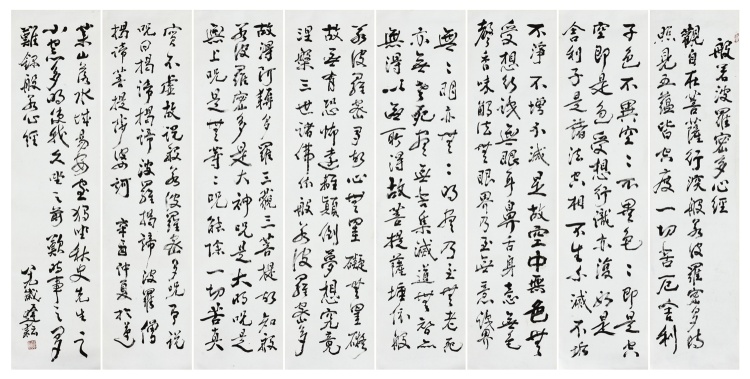 般若波羅密多心經
觀自在菩薩行深般若波羅密多時
照見五蘊皆空度一切苦厄舍利
子色不異空〻不異色〻即是空
空即是色受想行識亦復如是
舍利子是諸法空相不生不滅不垢
不淨不增不減是故空中無色無
受想行識無眼耳鼻舌身意無色
聲香味觸法無眼界乃至無意識界
無〻明亦無〻明盡乃至無老死
亦無老死盡無苦集滅道無智亦
無得以無所得故菩提薩埵依般
若波羅密多故心無罣礙無罣礙
故無有恐怖遠離顛倒夢想究竟
涅槃三世諸佛依般若波羅密多
故得阿耨多羅三藐三菩提故知般
若波羅密多是大神咒是大明咒是
無上咒是無等〻咒能除一切苦真
實不虛故說般若波羅密多咒即說
咒曰揭諦揭諦波羅揭諦波羅僧
揭諦菩提娑婆訶 辛酉仲夏於運
葉山落水城易安室獨吟秋史先生之
小窓多明使我久坐之句歎時事之多
難録般若心經